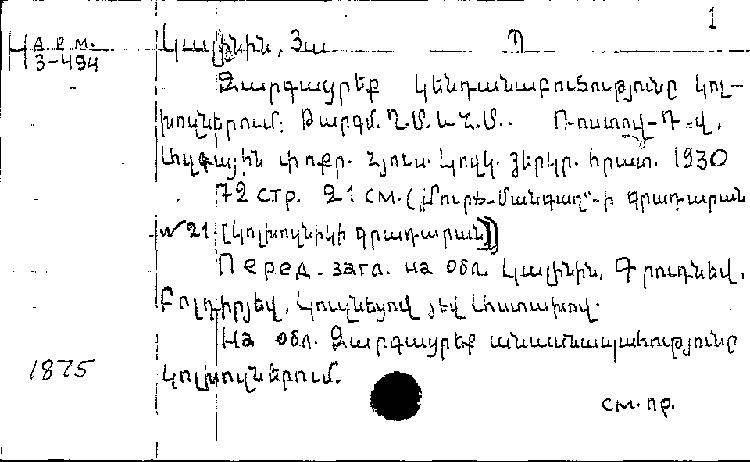 1
Арм. 3-494
Կալինին, Յա П
Զարգացրեք կենդանաբուծությունը կոլ-
խոզներում: Թարգմ. Ղ.Մ. և Հ.Մ.. Ռոստով-Դ-վ,
Ազգային փոքր. Հյուս. Կովկ. յերկր. հրատ. 1930
72 стр. 21 см. („Մուրճ-Մանգաղ“-ի գրադարան
№ 21 [Կոլխոզնիկի գրադարան])
Перед. загл. на обл. Կալինին, Գրուդնեվ,
Բոլդիրյեվ, յեվ
На обл. Զարգացրեք անասնապահությունը
կոլխոզներում.
1875
см. пр.